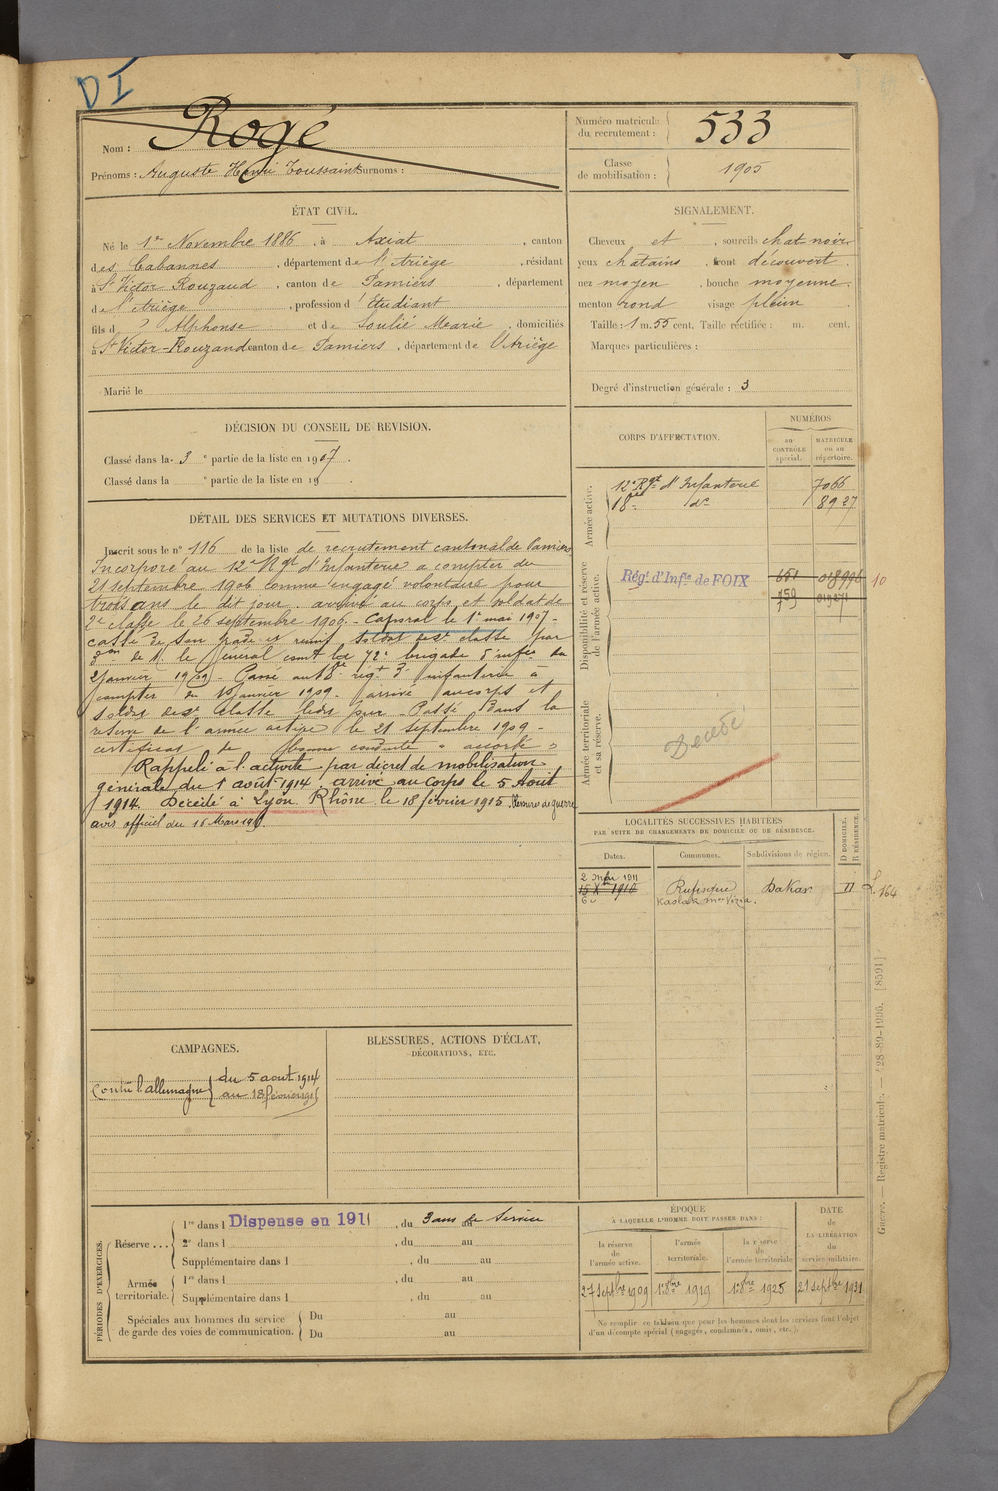 DI
Nom : Rogé
Prénoms : Auguste Henri Toussaint Surnoms :
Numéro matricule du recrutement : 533
Classe de mobilisation : 1905
ÉTAT CIVIL.
Né le 1er Novembre 1886, à Axiat, canton
des Cabannes, département de l'Ariège, résidant
à St Victor Rouzaud, canton de Pamiers, département
de l'Ariège, profession d'Etudiant
fils d Alphonse et de Soulié Marie, domiciliés
à St Victor-Rouzaud canton de Pamiers, département de l'Ariège
Marié le
SIGNALEMENT.
Cheveux et, sourcils chat noir
yeux chatains, front découvert.
nez moyen, bouche moyenne.
menton rond visage plein
Taille : 1 m. 55 cent. Taille rectifiée : m. cent.
Marques particulières :
Degré d'instruction générale : 3
DÉCISION DU CONSEIL DE REVISION.
Classé dans la 3e partie de la liste en 1907.
Classé dans la e partie de la liste en 19 .
DÉTAIL DES SERVICES ET MUTATIONS DIVERSES.
Inscrit sous le n° 116 de la liste de recrutement cantonal de Pamiers
Incorporé au 12e Rgt d'Infanterie à compter du
21 septembre 1906 comme engagé volontaire pour
trois ans le dit jour. arrivé au corps et soldat de
2e classe le 26 septembre 1906. - Caporal le 1er mai 1907 -
cassé de son grade et remis soldat de 2e classe par
don de M. le Général comt la 72e brigade d'infie du
2 janvier 1909 - Passé au 18e régt d'infanterie à
compter du janvier 1909 - arrivé au corps et
soldat de 2e classe ledit jour - Passé dans la
réserve de l'armée active le 21 septembre 1909 -
certificat de bonne conduite « accordé »
Rappelé à l'activité par décret de mobilisation
générale du 1er août 1914 arrivé au corps le 5 Août
1914. Décédé à Lyon Rhône le 18 février 1915. Blessures de guerre
avis officiel du 16 Mars 191
CORPS D'AFFECTATION.
NUMÉROS
au CONTRÔLE spécial.
MATRICULE ou au répertoire.
Armée active.
12e Rgt d'Infanterie 7066
18e do 8927
Disponibilité et réserve de l'armée active.
Régt d'Infie de FOIX 651 018996 10
759
Armée territoriale et sa réserve.
Décédé
LOCALITÉS SUCCESSIVES HABITÉES
PAR SUITE DE CHANGEMENTS DE DOMICILE OU DE RÉSIDENCE.
Dates. Communes. Subdivisions de région. D DOMICILE. R RÉSIDENCE.
2 1911
15 Xbre 1910 Rufisque Dakar
Kaolak
164
CAMPAGNES.
Contre l'allemagne { du 5 août 1914
au 18 février 1915
BLESSURES, ACTIONS D'ÉCLAT,
DÉCORATIONS, ETC.
PÉRIODES D'EXERCICES.
Réserve ...
1re dans l Dispense en 1911, du 3 ans de Service au
2e dans l , du au
Supplémentaire dans l , du au
Armée territoriale.
1re dans l , du au
Supplémentaire dans l , du au
Spéciales aux hommes du service de garde des voies de communication.
Du au
Du au
ÉPOQUE
À LAQUELLE L'HOMME DOIT PASSER DANS :
la réserve de l'armée active.
l'armée territoriale.
la réserve de l'armée territoriale
DATE
de
LA LIBÉRATION
du
service militaire.
27 septbre 1909 1er 8bre 1919 1er 8bre 1925 21 septbre 1931
Ne remplir ce tableau que pour les hommes dont les services font l'objet
d'un décompte spécial (engagés, condamnés, omis, etc.).
Guerre. — Registre matricule. — 28-89-1906. [8591]